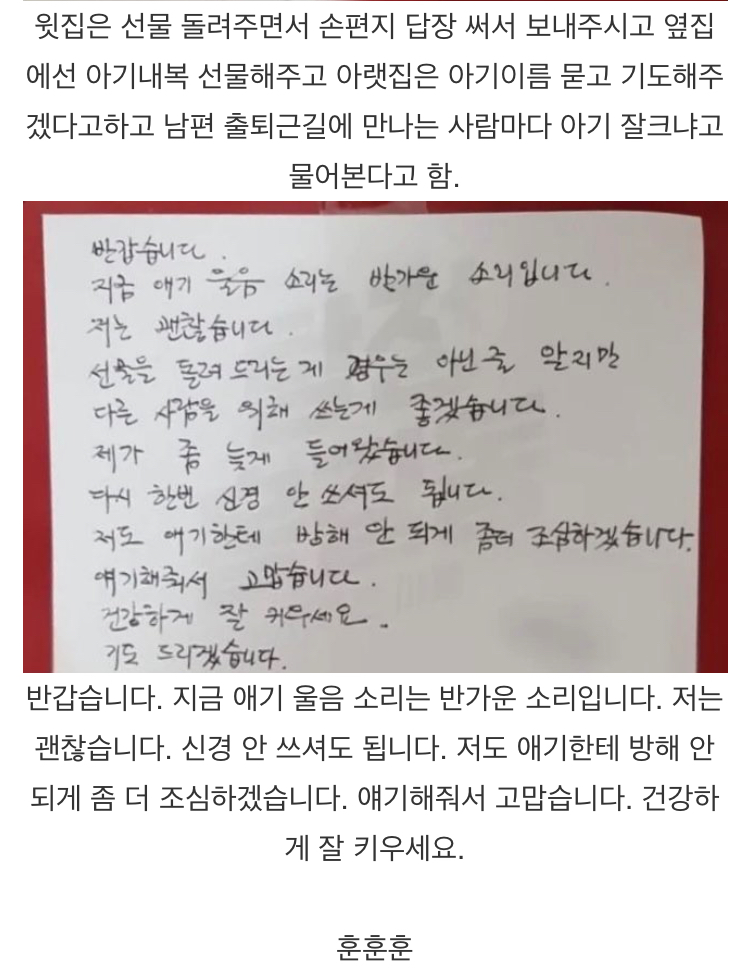 윗집은 선물 돌려주면서 손편지 답장 써서 보내주시고 옆집
에선 아기내복 선물해주고 아랫집은 아기이름 묻고 기도해주
겠다고하고 남편 출퇴근길에 만나는 사람마다 아기 잘크냐고
물어본다고 함.
반갑습니다.
지금 애기 울음 소리는 반가운 소리입니다.
저는 괜찮습니다.
선물을 돌려 드리는 게 경우는 아닌 줄 알지만
다른 사람을 위해 쓰는게 좋겠습니다.
제가 좀 늦게 들어왔습니다.
다시 한번 신경 안 쓰셔도 됩니다.
저도 애기한테 방해 안 되게 좀더 조심하겠습니다.
얘기해줘서 고맙습니다.
건강하게 잘 키우세요.
기도 드리겠습니다.
반갑습니다. 지금 애기 울음 소리는 반가운 소리입니다. 저는
괜찮습니다. 신경 안 쓰셔도 됩니다. 저도 애기한테 방해 안
되게 좀 더 조심하겠습니다. 얘기해줘서 고맙습니다. 건강하
게 잘 키우세요.
훈훈훈